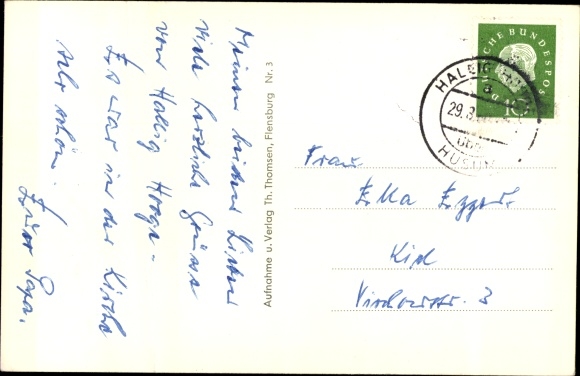 Meinen beiden Lieben
viele herzliche Grüsse
von Hallig Hooge.
Es war in der Kirche
sehr schön.
Euer Papa.
Aufnahme u. Verlag Th. Thomsen, Flensburg Nr. 3
DEUTSCHE BUNDESPOST
10
HALLIG HOOGE
a
29.8.
über
HUSUM
Frau
Ella
Kiel
Virchowstr. 3